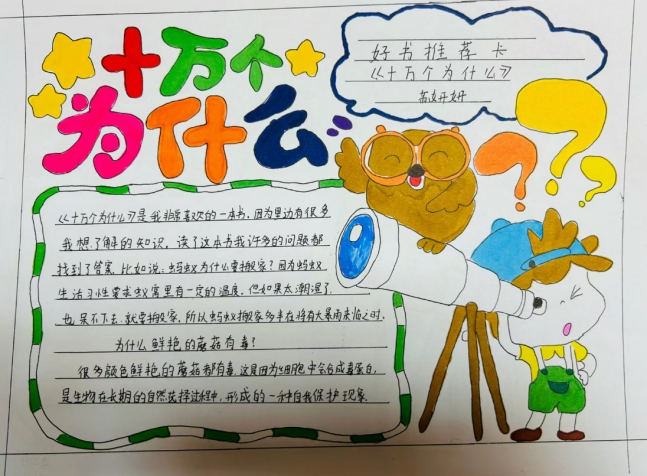 十万个
为什么
好书推荐卡
《十万个为什么》
《十万个为什么》是我非常喜欢的一本书，因为里边有很多
我想了解的知识，读了这本书我许多的问题都
找到了答案。比如说：蚂蚁为什么要搬家？因为蚂蚁
生活习性要求蚁窝里有一定的温度，但如果太潮湿了
也呆不下去，就要搬家，所以蚂蚁搬家多半在将有大暴雨来临之时。
为什么鲜艳的蘑菇有毒？
很多颜色鲜艳的蘑菇都有毒，这是因为细胞中含有毒蛋白，
是生物在长期的自然选择过程中，形成的一种自我保护现象。
？？？